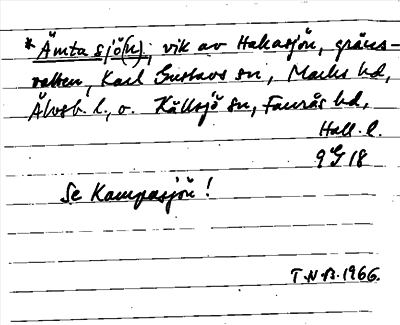 * Ämta sjö(n), vik av Hakasjön, gräns-
vatten, Karl Gustavs sn, Marks hd,
Älvsb. l., o. Källsjö sn, Faurås hd,
Hall. l.
9 G 18
Se Kampasjön!
T.N.B. 1966.